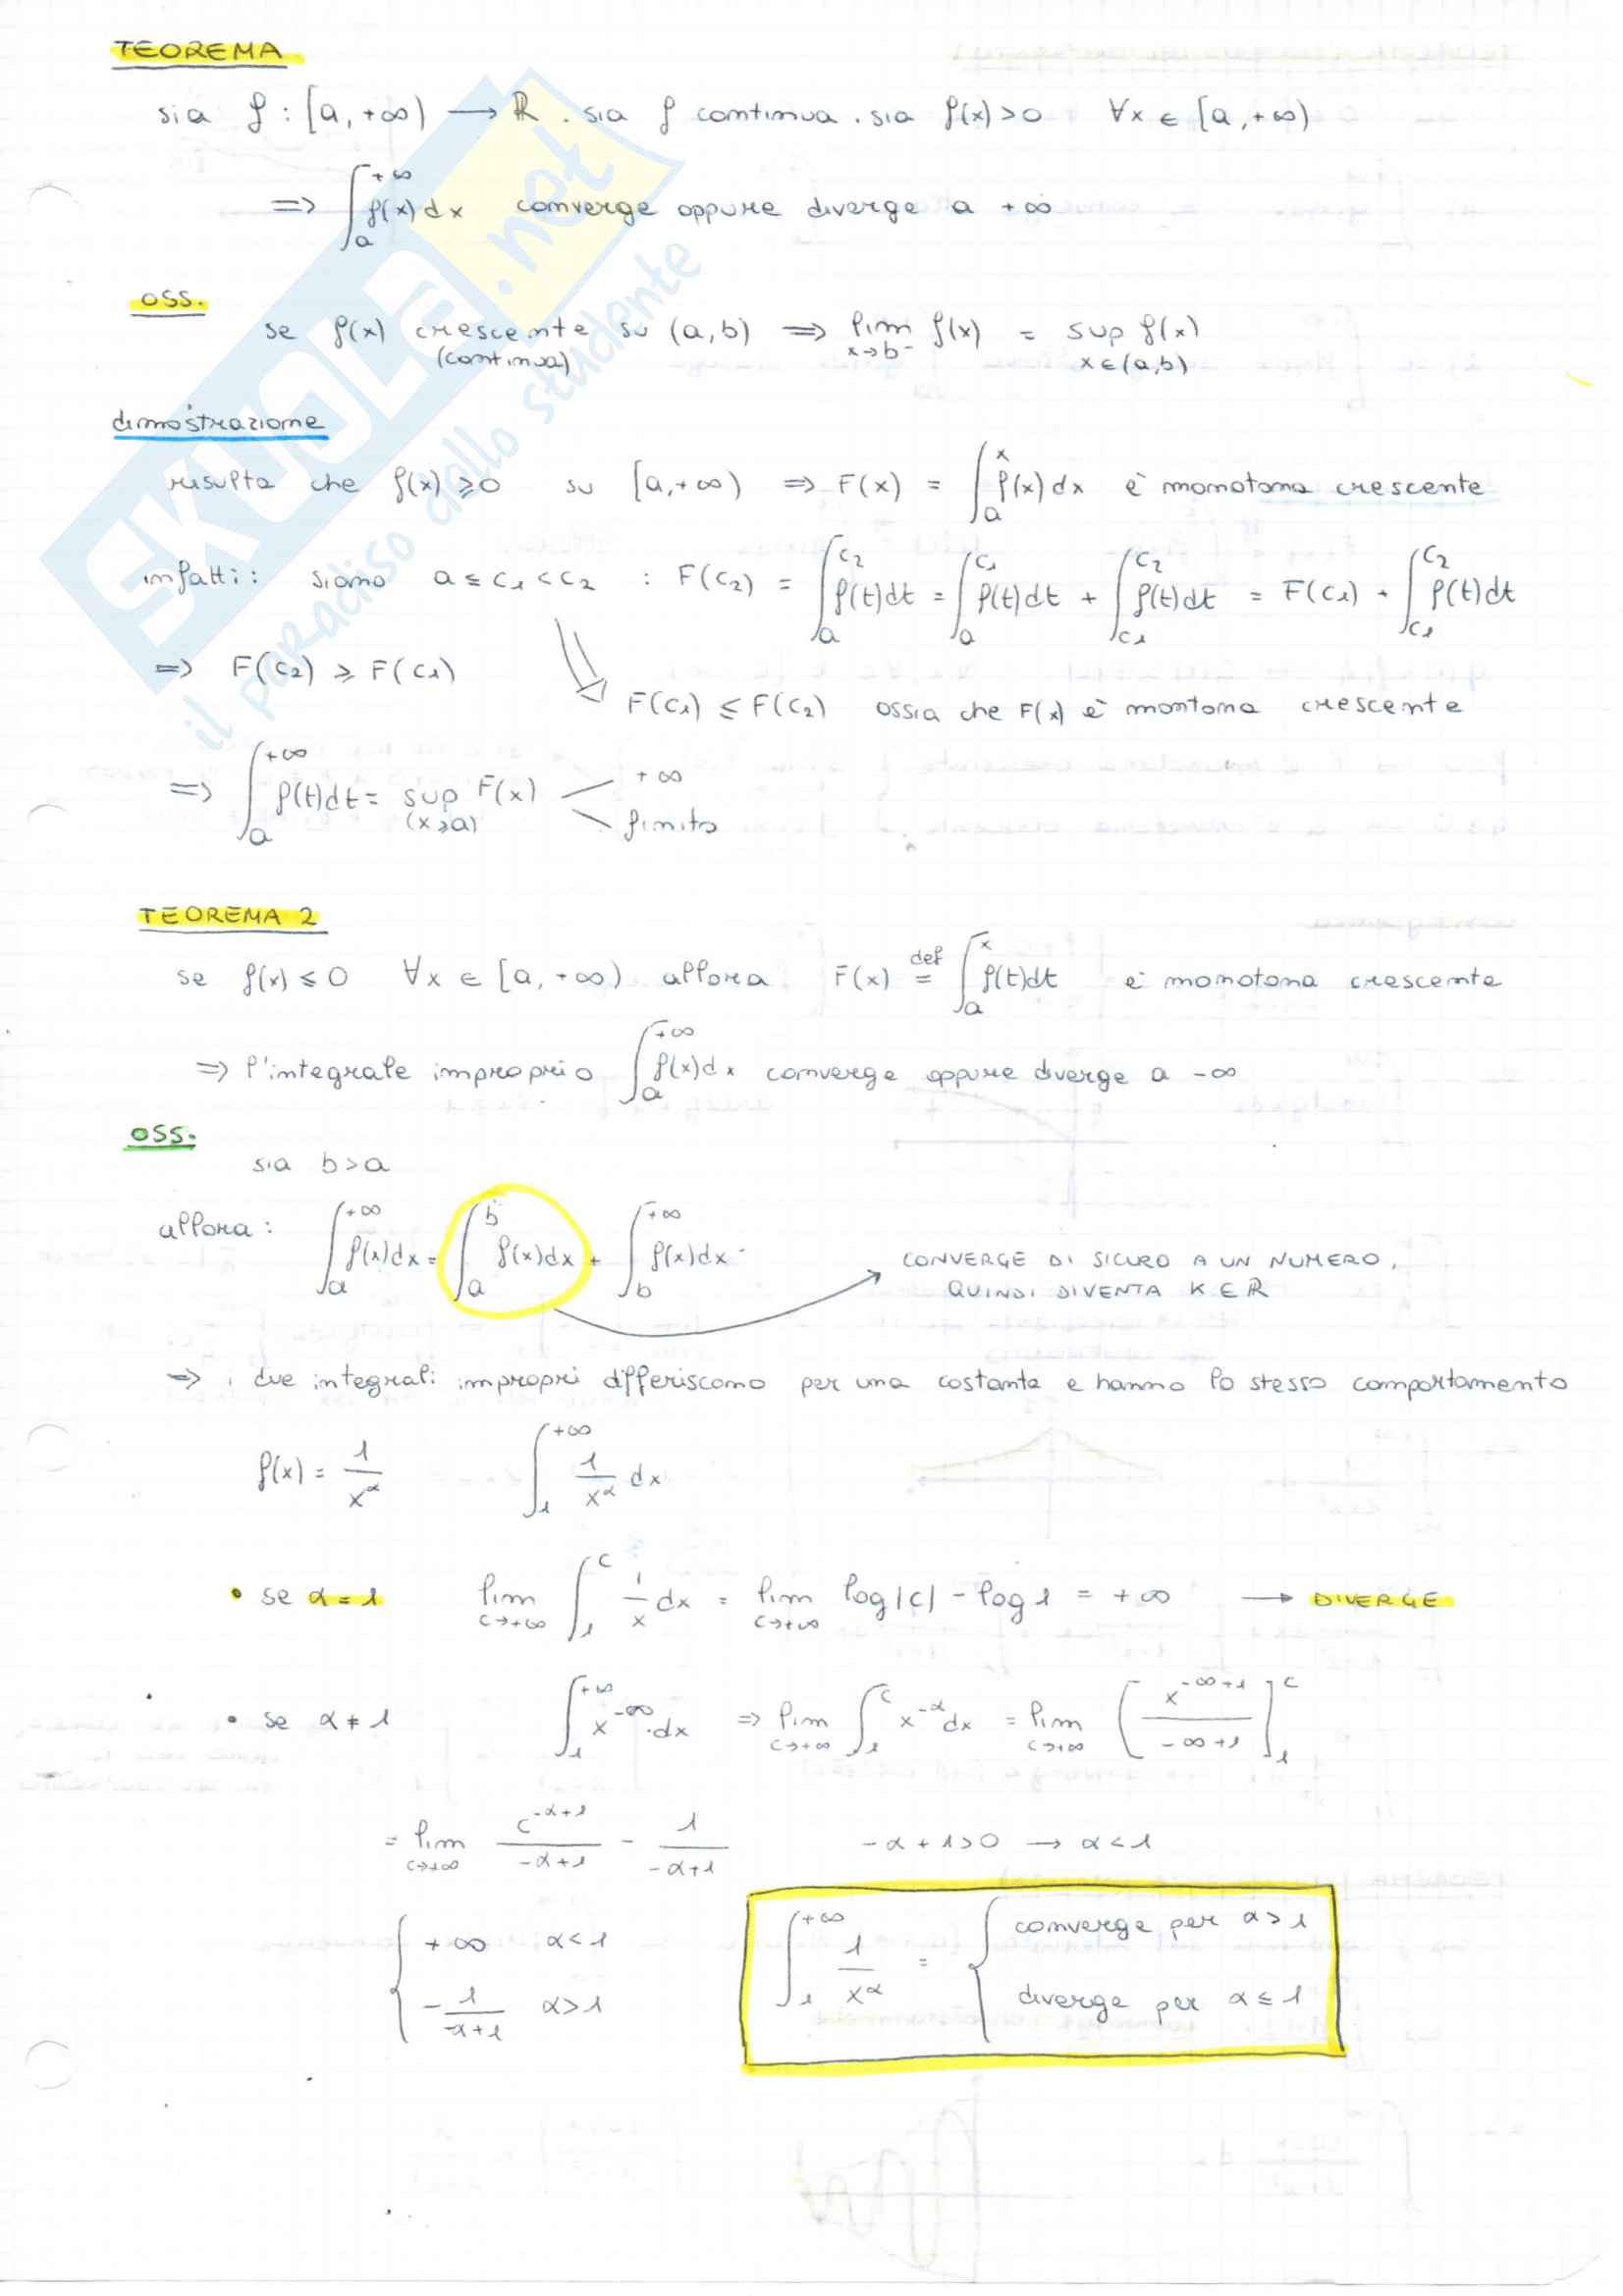 TEOREMA
sia f : [a, +∞) → ℝ . sia f continua . sia f(x) > 0 ∀x ∈ [a, +∞)
⇒ ∫_a^{+∞} f(x) dx converge oppure diverge a +∞
OSS.
se f(x) crescente su (a,b) ⇒ lim_{x→b⁻} f(x) = sup_{x∈(a,b)} f(x)
(continua)
dimostrazione
risulta che f(x) ⩾ 0 su [a,+∞) ⇒ F(x) = ∫_a^x f(x) dx è monotona crescente
infatti : siano a ≤ c₁ < c₂ : F(c₂) = ∫_a^{c₂} f(t)dt = ∫_a^{c₁} f(t)dt + ∫_{c₁}^{c₂} f(t)dt = F(c₁) + ∫_{c₁}^{c₂} f(t)dt
⇒ F(c₂) ⩾ F(c₁)
F(c₁) ≤ F(c₂) ossia che F(x) è montona crescente
⇒ ∫_a^{+∞} f(t)dt = sup_{(x⩾a)} F(x) +∞
finito
TEOREMA 2
se f(x) ≤ 0 ∀x ∈ [a, +∞) allora F(x) def= ∫_a^x f(t)dt è monotona crescente
⇒ l'integrale improprio ∫_a^{+∞} f(x)dx converge oppure diverge a -∞
OSS.
sia b > a
allora : ∫_a^{+∞} f(x)dx = ∫_a^b f(x)dx + ∫_b^{+∞} f(x)dx
CONVERGE DI SICURO A UN NUMERO,
QUINDI DIVENTA K ∈ R
⇒ i due integrali impropri differiscono per una costante e hanno lo stesso comportamento
f(x) = 1/x^α ∫_1^{+∞} 1/x^α dx
• se α = 1 lim_{c→+∞} ∫_1^c 1/x dx = lim_{c→+∞} log|c| - log 1 = +∞ → DIVERGE
• se α ≠ 1 ∫_1^{+∞} x^{-∞} . dx ⇒ lim_{c→+∞} ∫_1^c x^{-α} dx = lim_{c→+∞} [x^{-∞+1}/(-∞+1)]_1^c
= lim_{c→+∞} c^{-α+1}/(-α+1) - 1/(-α+1) -α + 1 > 0 → α < 1
{ +∞ α < 1
-1/(-α+1) α > 1
∫_1^{+∞} 1/x^α = { converge per α > 1
diverge per α ≤ 1
SKUOLA.net
il paradiso dello studente